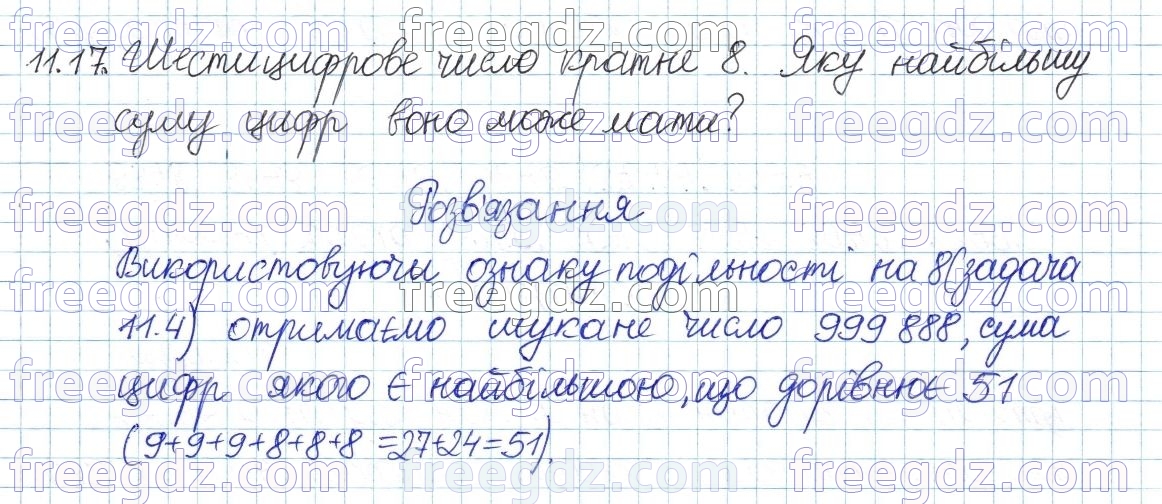 11.17. Шестицифрове число кратне 8. Яку найбільшу
суму цифр воно може мати?
Розв'язання
Використовуючи ознаку подільності на 8 (задача
11.4) отримаємо шукане число 999 888, сума
цифр якого є найбільшою, що дорівнює 51
(9+9+9+8+8+8=27+24=51).
freegdz.com